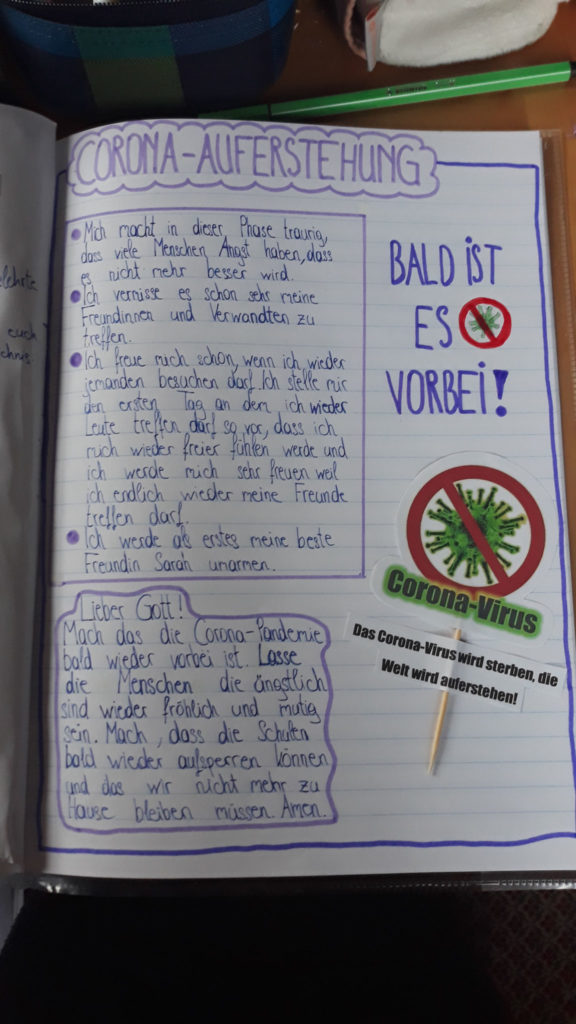 CORONA-AUFERSTEHUNG
Mich macht in dieser Phase traurig,
dass viele Menschen Angst haben, dass
es nicht mehr besser wird.
Ich vermisse es schon sehr meine
Freundinnen und Verwandten zu
treffen.
Ich freue mich schon, wenn ich wieder
jemanden besuchen darf. Ich stelle mir
den ersten Tag an dem ich wieder
Leute treffen darf so vor, dass ich
mich wieder freier fühlen werde und
ich werde mich sehr freuen weil
ich endlich wieder meine Freunde
treffen darf.
Ich werde als erstes meine beste
Freundin Sarah umarmen.
BALD IST
ES
VORBEI!
Corona-Virus
Das Corona-Virus wird sterben, die
Welt wird auferstehen!
Lieber Gott!
Mach das die Corona-Pandemie
bald wieder vorbei ist. Lasse
die Menschen die ängstlich
sind wieder fröhlich und mutig
sein. Mach, dass die Schulen
bald wieder aufsperren können
und das wir nicht mehr zu
Hause bleiben müssen. Amen.
euch